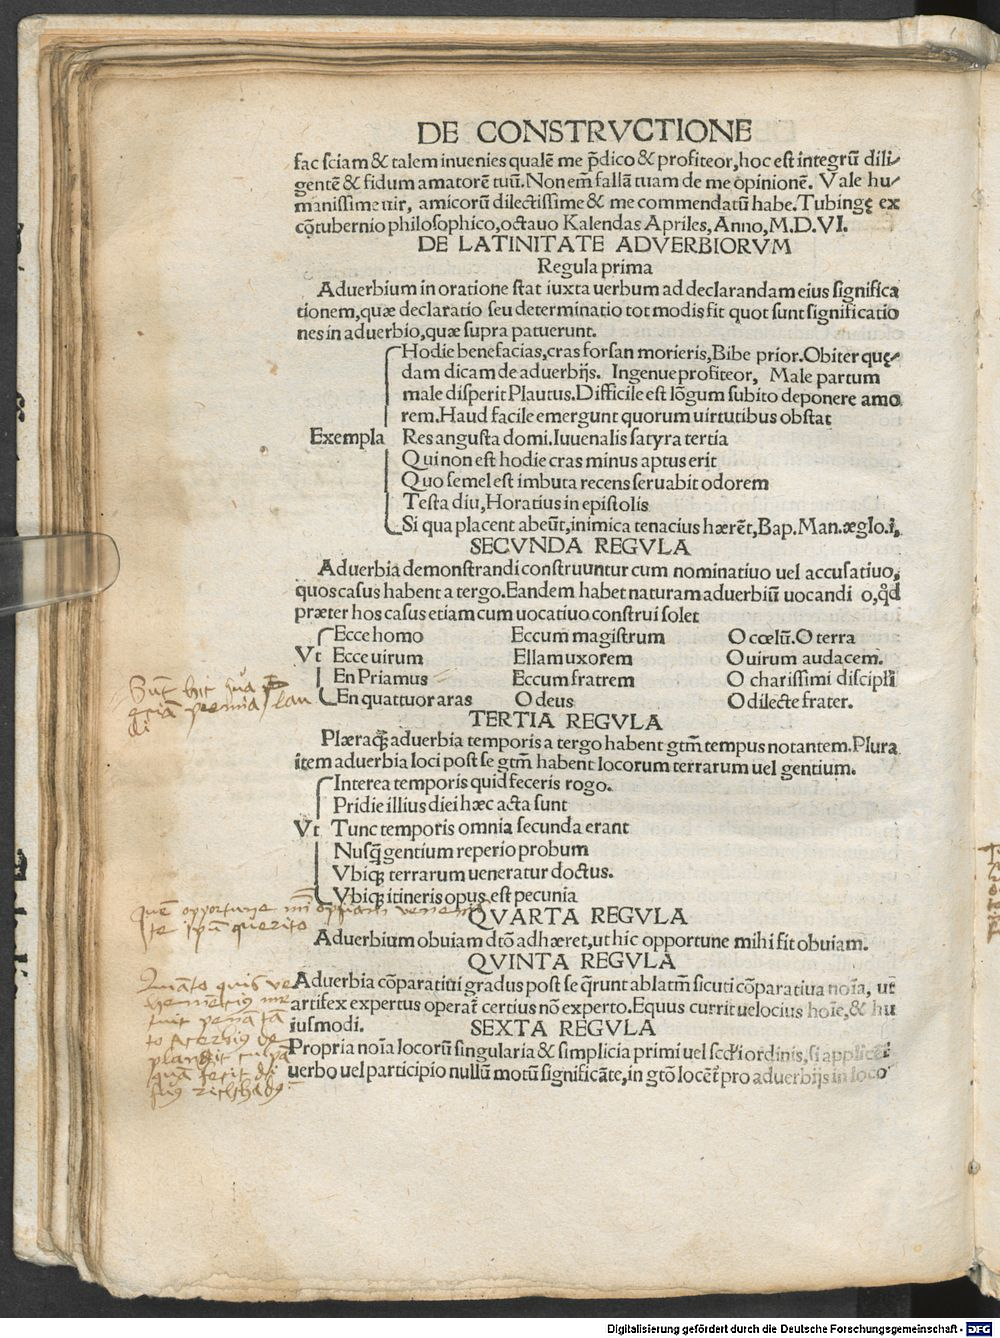 DE CONSTRVCTIONE
fac sciam & talem inuenies qualē me p̄dico & profiteor, hoc est integrū dili⸗
gentē & fidum amatorē tuū. Non em̄ fallā tuam de me opinionē. Vale hu⸗
manissime uir, amicorū dilectissime & me commendatū habe. Tubingę ex
cōtubernio philosophico, octauo Kalendas Apriles, Anno, M.D.VI.
DE LATINITATE ADVERBIORVM
Regula prima
Aduerbium in oratione stat iuxta uerbum ad declarandam eius significa
tionem, quæ declaratio seu determinatio tot modis fit quot sunt significatio
nes in aduerbio, quæ supra patuerunt.
Hodie benefacias, cras forsan morieris, Bibe prior. Obiter quę⸗
dam dicam de aduerbijs. Ingenue profiteor, Male partum
male disperit Plautus. Difficile est lōgum subito deponere amo
rem. Haud facile emergunt quorum uirtutibus obstat
Exempla Res angusta domi. Iuuenalis satyra tertia
Qui non est hodie cras minus aptus erit
Quo semel est imbuta recens seruabit odorem
Testa diu, Horatius in epistolis
Si qua placent abeūt, inimica tenacius hærēt, Bap. Man. æglo. i.
SECVNDA REGVLA
Aduerbia demonstrandi construuntur cum nominatiuo uel accusatiuo,
quos casus habent a tergo. Eandem habet naturam aduerbiū uocandi o, qd̓
præter hos casus etiam cum uocatiuo construi solet
Ecce homo Eccum magistrum O cœlū. O terra
Vt Ecce uirum Ellam uxorem O uirum audacem.
En Priamus Eccum fratrem O charissimi discipli
En quattuor aras O deus O dilecte frater.
TERTIA REGVLA
Plæraqꝫ aduerbia temporis a tergo habent gtm̄ tempus notantem. Plura
item aduerbia loci post se gtm̄ habent locorum terrarum uel gentium.
Interea temporis quid feceris rogo.
Pridie illius diei hæc acta sunt
Vt Tunc temporis omnia secunda erant
Nusq̄ gentium reperio probum
Vbiqꝫ terrarum ueneratur doctus.
Vbiqꝫ itineris opus est pecunia
QVARTA REGVLA
Aduerbium obuiam dtō adhæret, ut hic opportune mihi fit obuiam.
QVINTA REGVLA
Aduerbia cōparatiui gradus post se q̄runt ablatm̄ sicuti cōparatiua noīa, ut
artifex expertus operat̄ certius nō experto. Equus currit uelocius hoīe, & hu
iusmodi. SEXTA REGVLA
Propria noīa locorū singularia & simplicia primi uel scdi ordinis, si
uerbo uel participio nullū motū significāte, in gtō locēt̄ pro aduerbijs in loco
Digitalisierung gefördert durch die Deutsche Forschungsgemeinschaft - DFG